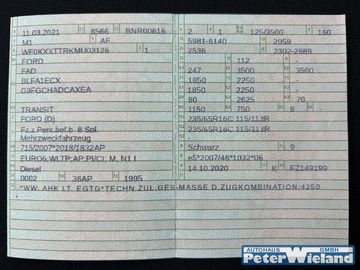 11.03.2021 6566 BNR00616 2 1 125/3500 160
M1 AF 5981-6140 2059
WF0KXXTTRKMU03126 1 2536 2302-2689
FORD 112 -
FAD 247 3500 3500
BLFA1ECX 1850 2250 -
G9FGCHADCAXEA 1850 2250 -
80 2625 70
TRANSIT 1150 750 9 -
FORD (D) 235/65R16C 115/113R
Fz.z.Pers.bef.b. 8 Spl. 235/65R16C 115/113R
Mehrzweckfahrzeug
715/2007*2018/1832AP Schwarz 9
EURO6;WLTP;AP;PI/CI; M, N1 I e5*2007/46*1032*06
Diesel 14.10.2020 K FZ149199
0002 36AP 1995
*WW. AHK LT. EGTG*TECHN.ZUL.GES-MASSE D.ZUGKOMBINATION:4250
*
AUTOHAUS GMBH
Peter Wieland